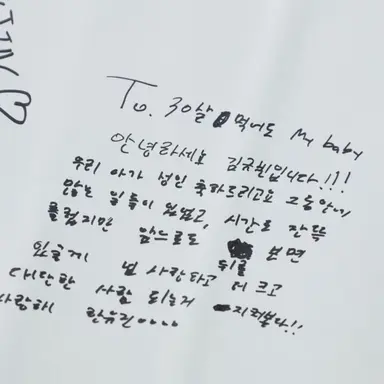 To. 30살 먹어도 My baby
안녕하세요 김진휘입니다!!!
우리 아가 생일 축하드리고요 그동안에
많은 일들이 있었고, 시간도 잔뜩
흘렀지만 앞으로도 뒤를 보면
있을게 널 사랑하고 더 크고
대단한 사람 되는거 지켜본다!!
사랑해